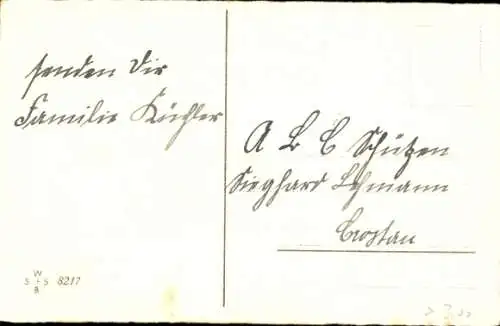 senden Dir
Familie Küchler
A B C Schützen
Sieghard Lehmann
Crostau
W
S + S
B
8217